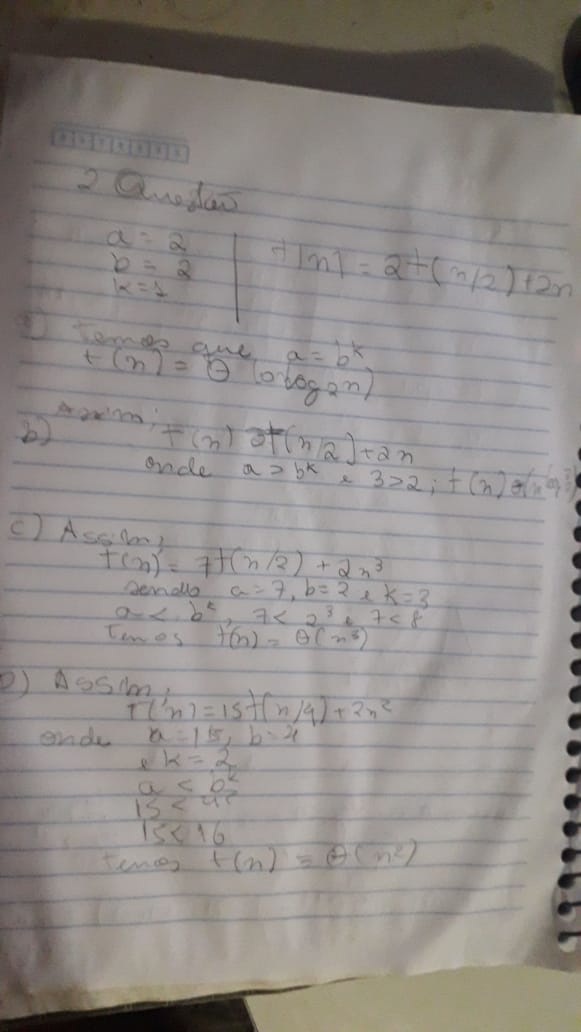 2 Questão
a = 2
b = 2
k = 1
t(n) = 2t(n/2) + 2n
temos que a = b^k
t(n) = Θ (n log₂ n)
Assim;
b) t(n) 3t(n/2) + 2n
onde a > b^k e 3 > 2; t(n)
c) Assim,
t(n) = 7t(n/2) + 2n³
sendo a = 7, b = 2 e k = 3
a < b^k, 7 < 2³ e 7 < 8
Temos t(n) = Θ(n³)
D) Assim,
T(n) = 15t(n/4) + 2n²
onde a = 15, b = 4
e k = 2
a < b^k
15 < 4²
15 < 16
temos t(n) = Θ(n²)